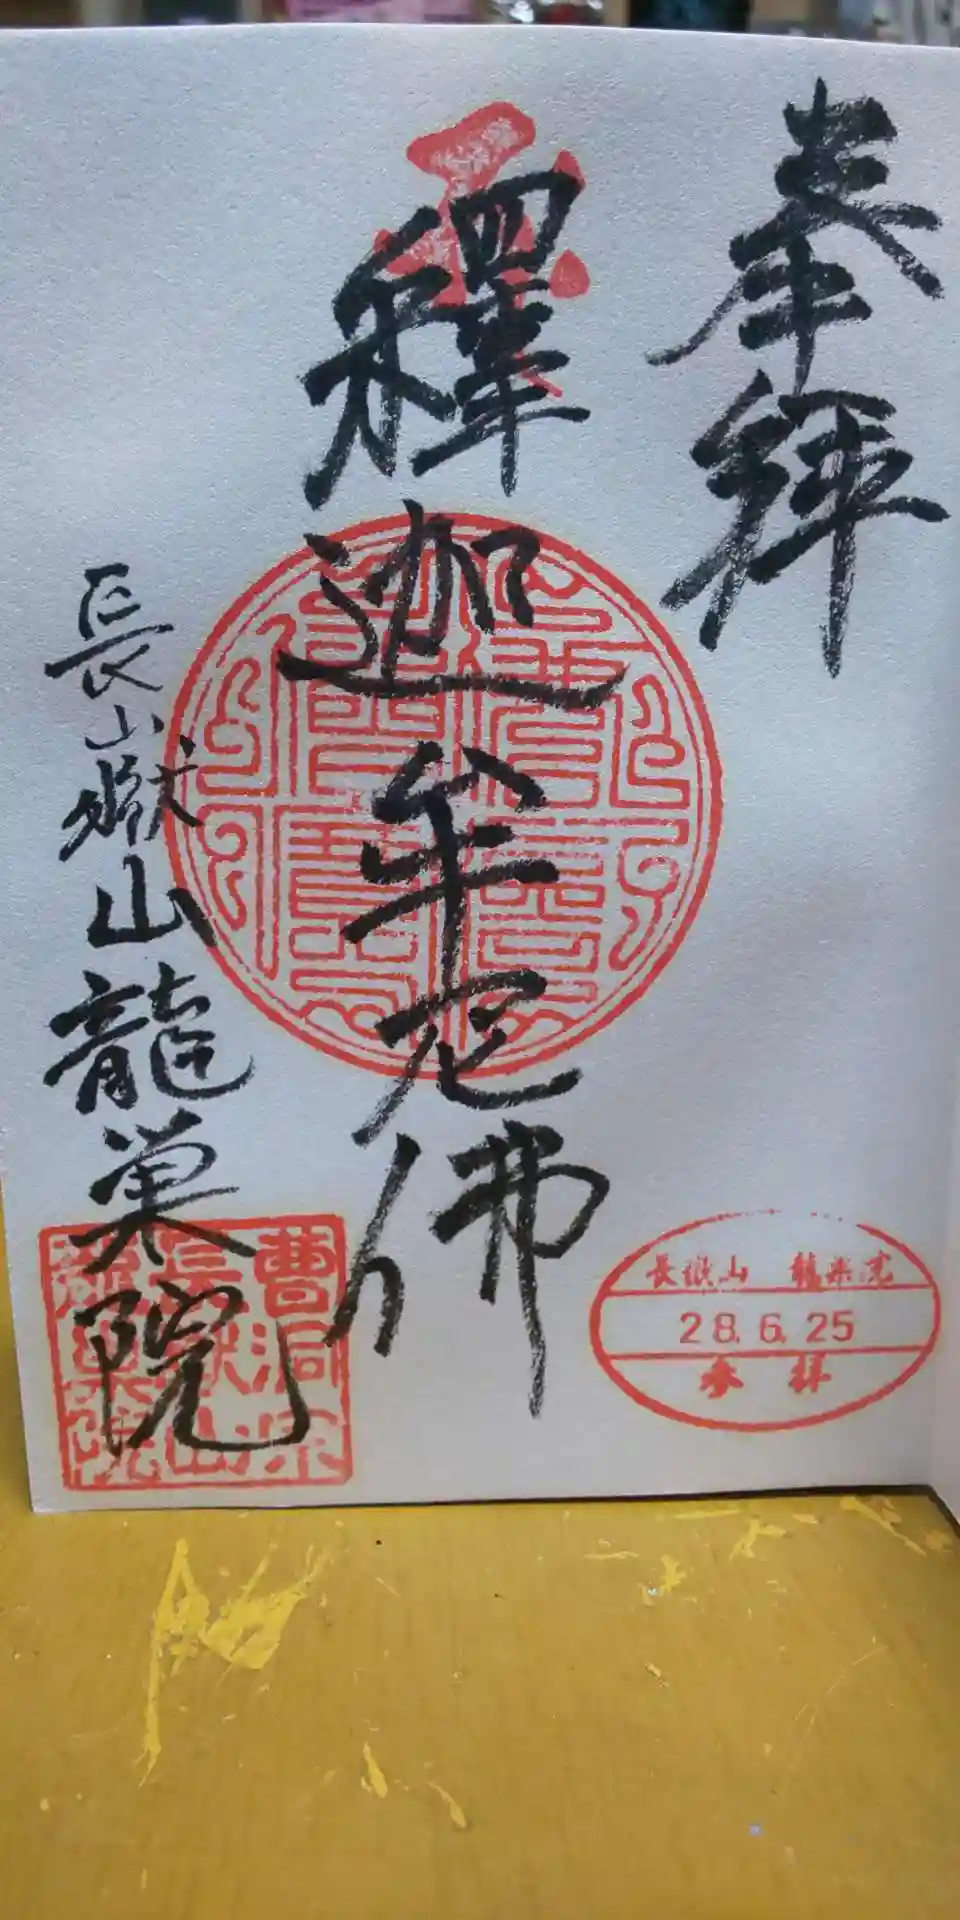 奉拝
釋迦牟尼佛
長嶽山龍巣院
曹洞宗
長嶽山
龍巣院
長嶽山 龍巣院
28.6.25
参拝